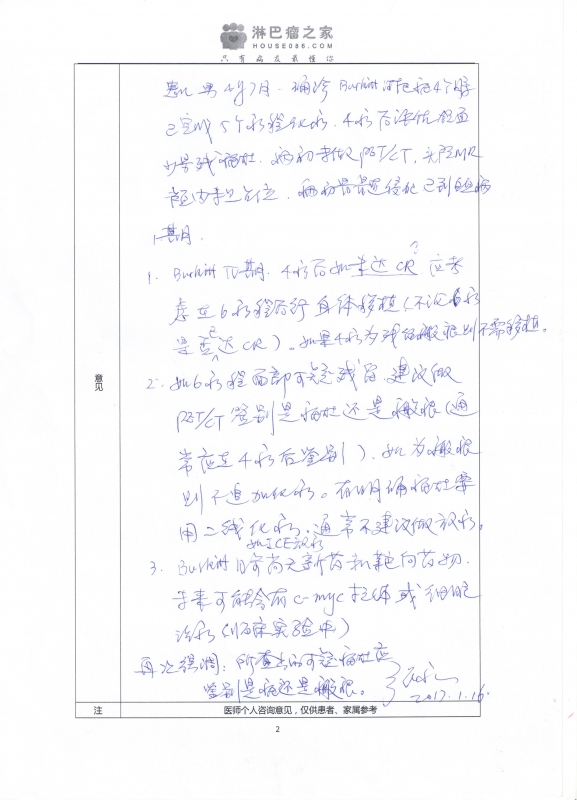 淋巴瘤之家
HOUSE086.COM
只有病友最懂你
患儿 男 4岁7月. 确诊 Burkitt 淋巴瘤4个月
已完成5个疗程化疗. 4疗后评估 颌面
少量残留病灶. 病初未做PET/CT, 头颅MR
颅内未见占位. 病初骨髓侵犯 已到白血病
期.
1. Burkitt IV期. 4疗后如未达CR, 应考
虑在6疗程后行自体移植(不论6疗
是否达CR)。如果4疗为残留瘢痕则不需移植。
2. 如6疗程面部可疑残留, 建议做
PET/CT鉴别是病灶还是瘢痕(通
常应在4疗后鉴别), 如为瘢痕
则不追加化疗。有明确病灶要
用二线化疗, 通常不建议做放疗。
如ICE
3. Burkitt 目前尚无新药和靶向药物.
未来可能会有c-myc抗体或细胞
治疗(临床实验中)
再次强调: 所查出的可疑病灶应
鉴别是病灶还是瘢痕。
2017.1.16
意见
注
医师个人咨询意见,仅供患者、家属参考
2